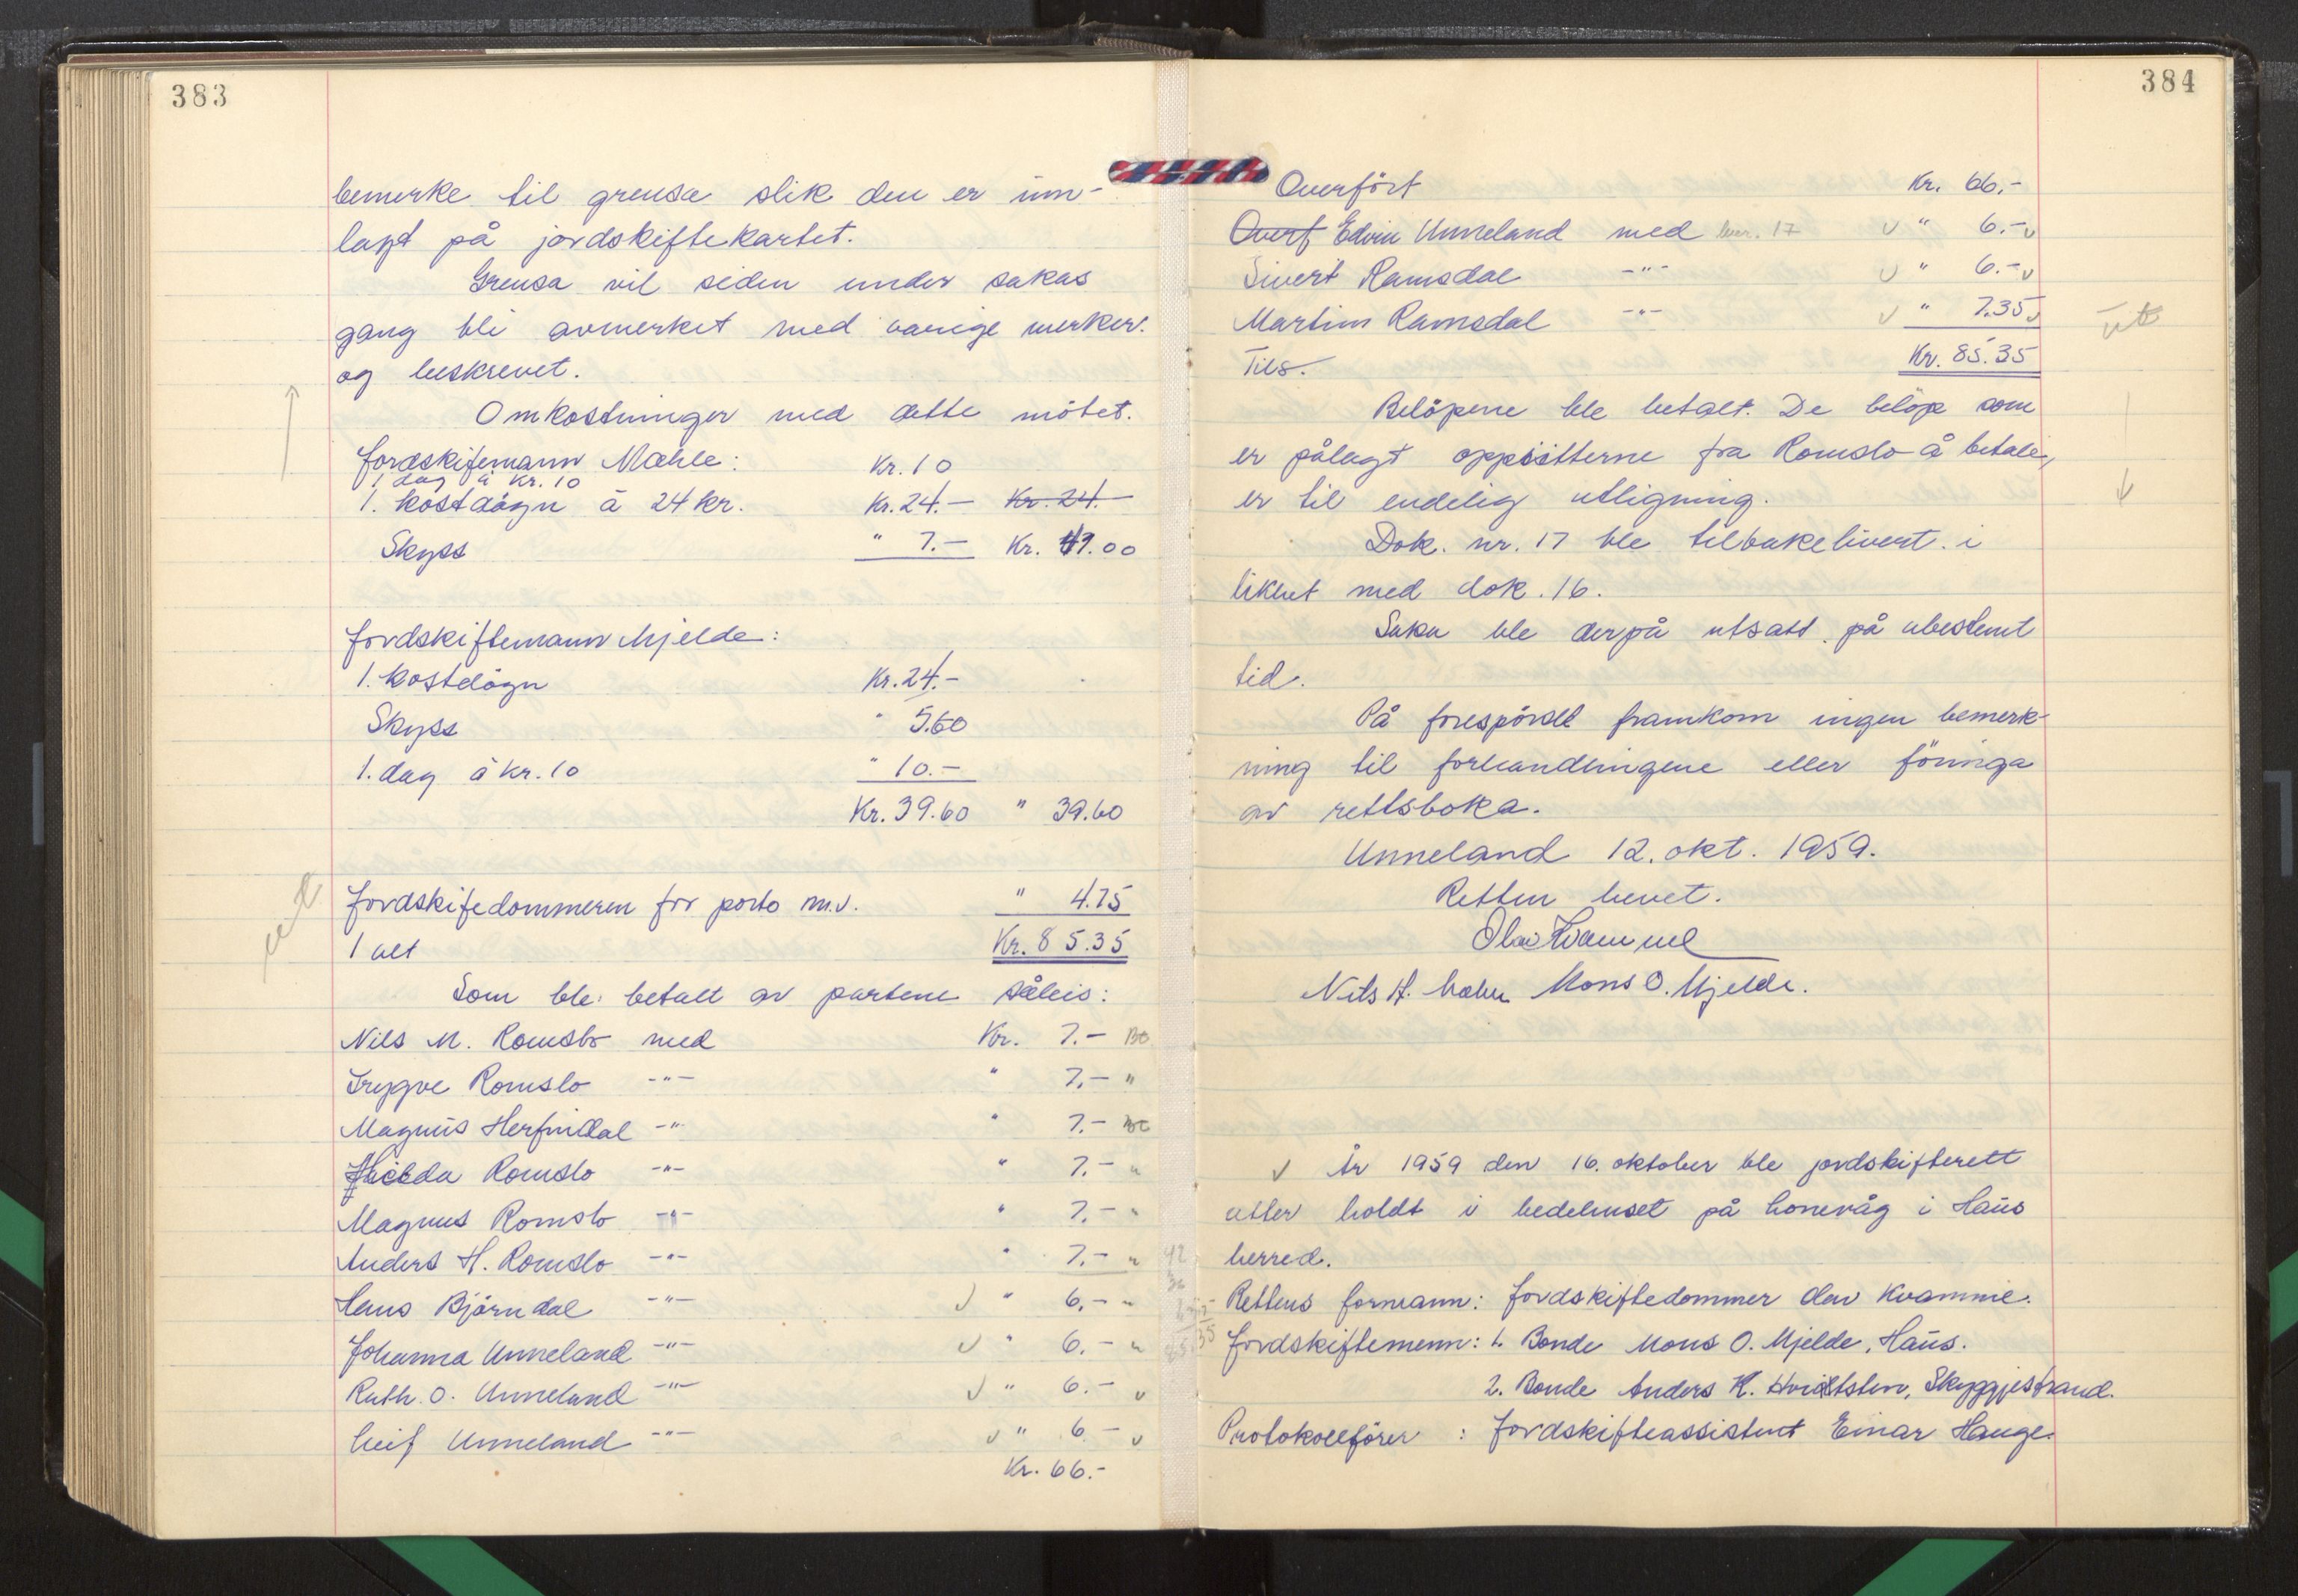 383
bemerke til grensa slik den er inn-
lagt på jordskiftekartet.
Grensa vil siden under sakas
gang bli avmerket med varige merker.
og beskrevet.
Omkostninger med dette mötet.
Jordskifemann Mæhle: Kr. 10
1 dag á kr. 10
1. kostdögn á 24 kr. Kr. 24.- Kr. 24.-
Skyss " 7.- Kr. 41.00
Jordskiftemann Mjelde:
1. kostdögn Kr. 24.-
Skyss " 5.60
1. dag á kr. 10 " 10.-
Kr. 39.60 " 39.60
Jordskifedommeren for porto m.v. " 4.75
I alt Kr. 85.35
Som ble betalt av partene såleis:
Nils M. Romslo med Kr. 7.- Bt
Trygve Romslo -"- " 7.- "
Magnus Herfindal -"- " 7.- Bt
Hilda Romslo -"- " 7.- "
Magnus Romslo -"- " 7.- "
Anders H. Romslo -"- " 7.- "
Hans Björndal -"- " 6.- "
Johanna Unneland -"- " 6.- "
Ruth. O. Unneland -"- " 6.-
Leif Unneland -"- " 6.-
Kr. 66.-
384
Overfört Kr. 66.-
Overf Edvin Unneland med " 6.-
Sivert Ramsdal -"- " 6.-
Martin Ramsdal -"- " 7.35
ut
Tils. Kr. 85.35
Belöpene ble betalt. De belöp som
er pålagt oppsitterne fra Romslo å betale,
er til endelig utligning.
Dok. nr. 17 ble tilbakelivert i
likhet med dok. 16.
Saka ble derpå utsatt på ubestemt
tid.
På forespördl framkom ingen bemerk-
ning til forhandlingene eller föringa
av rettsboka.
Unneland 12. okt. 1959.
Retten hevet.
Olav Kvamme
Nils H. Mæhle Mons O. Mjelde.
År 1959 den 16. oktober ble jordskifterett
atter holdt i bedehuset på Lonevåg i Haus
herred.
Rettens formann: Jordskiftedommer Olav Kvamme.
Jordskiftemenn: 1. Bonde Mons O. Mjelde, Haus.
2. Bonde Anders K. Hvidtsten, Skyggjestrand.
Protokollförer : Jordskifteassistent Einar Hauge.